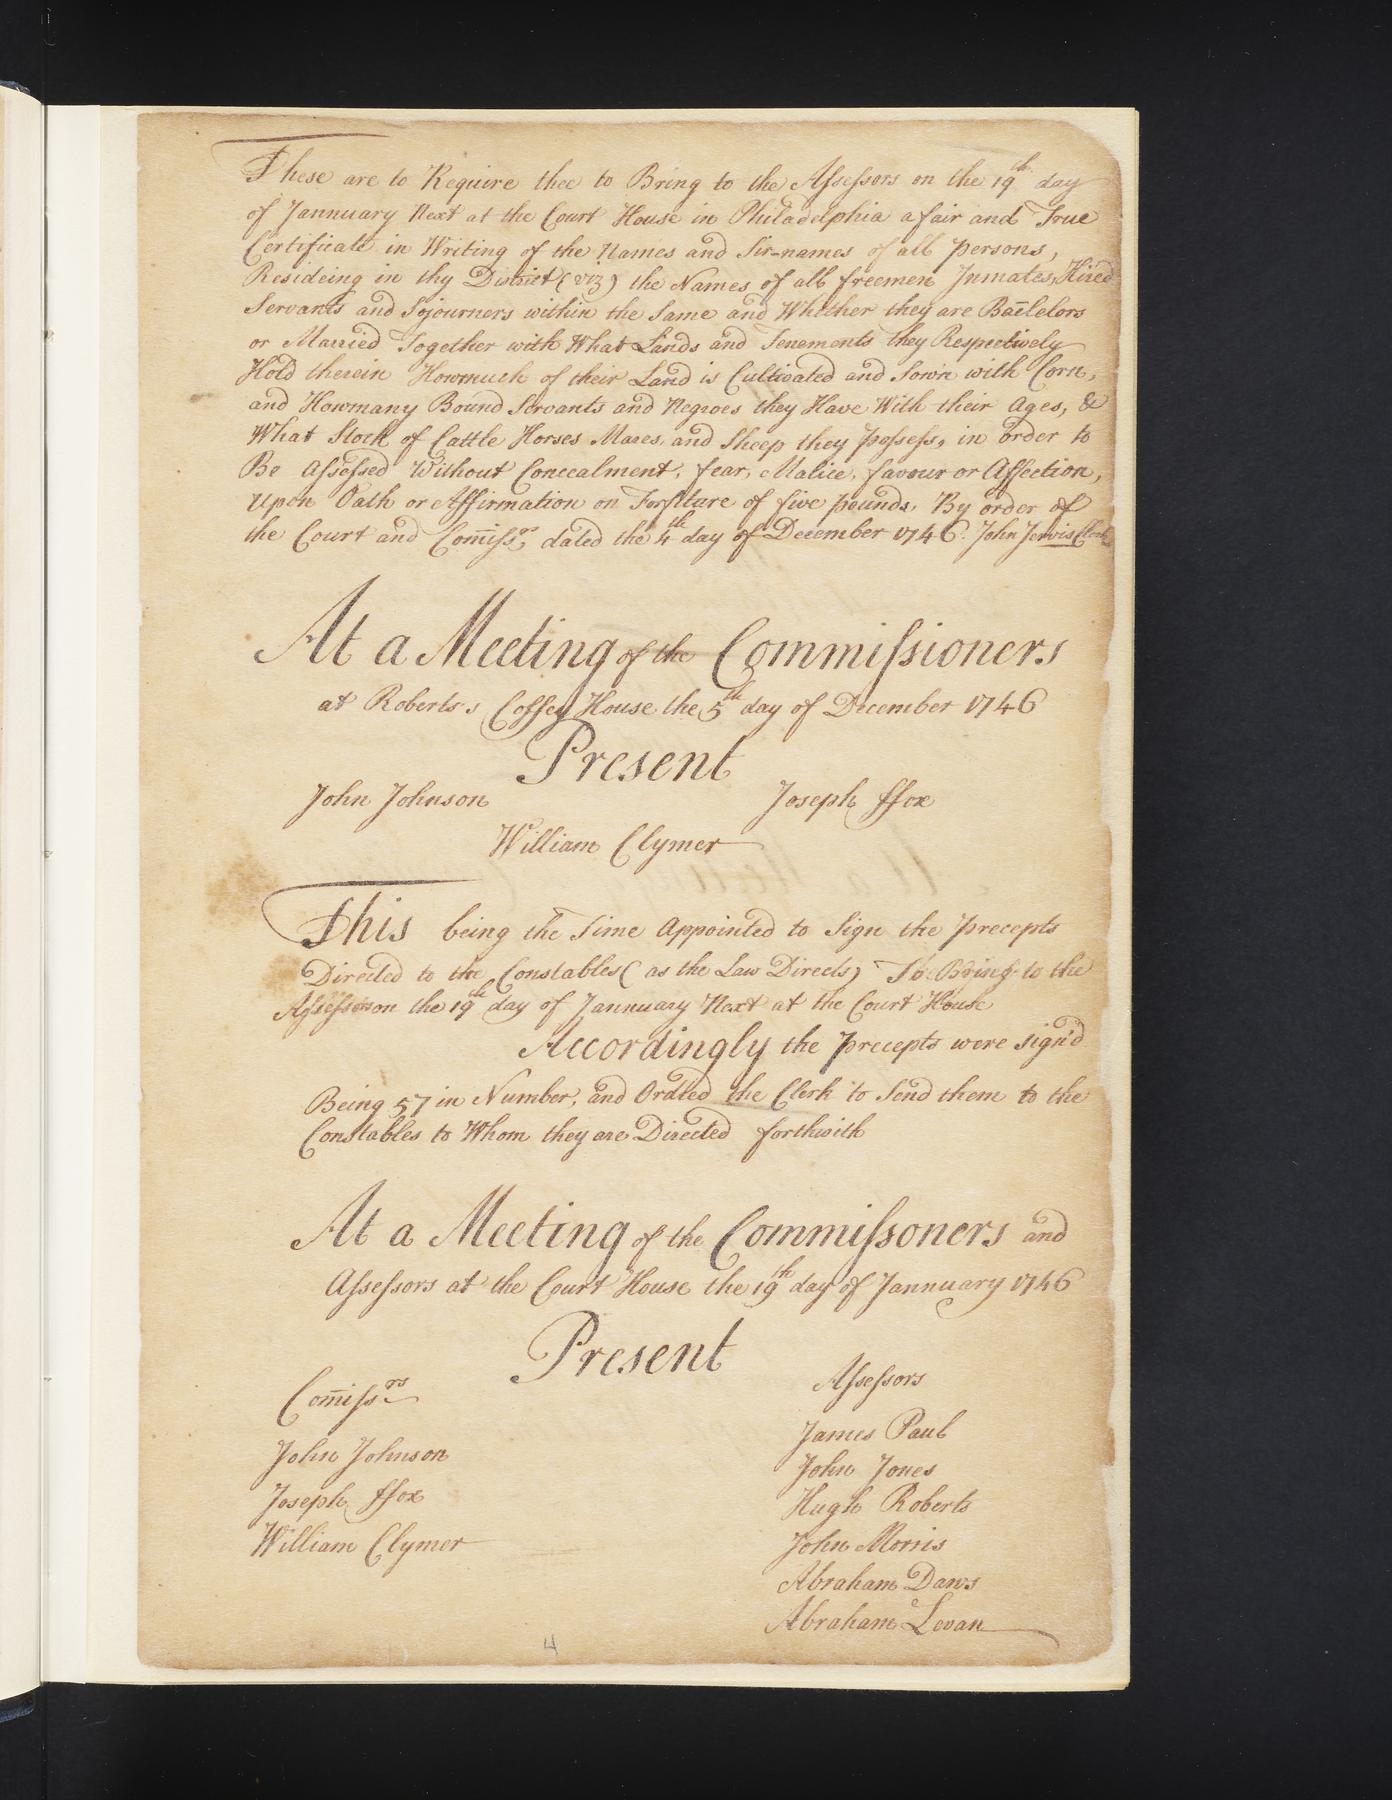 These are to Require thee to Bring to the Assessors on the 19th day
of Jannuary Next at the Court House in Philadelphia a fair and True
Certificate in Writing of the Names and Sir-names of all persons,
Resideing in thy District (viz) the Names of all freemen Inmates, Hired
Servants and Sojourners within the Same and Whether they are Bachelors
or Married Together with What Lands and Tenements they Respectively
Hold therein Howmuch of their Land is Cultivated and Sown with Corn,
and Howmany Bound Servants and Negroes they Have With their Ages, &
What Stock of Cattle Horses Mares, and Sheep they possess, in order to
Be Assessed Without Concealment, fear, Malice, favour or Affection,
Upon Oath or Affirmation on Forfitare of five pounds, By order of
the Court and Com̄issrs dated the 4th day of December 1746. John Jervis Clerk
At a Meeting of the Commissioners
at Roberts's Coffey House the 5th day of December 1746
Present
John Johnson Joseph ffox
William Clymer
This being the Time Appointed to Sign the precepts
Directed to the Constables (as the Law Directs) To Bring to the
Assessors on the 19th day of Jannuary Next at the Court House
Accordingly the precepts were sign'd
Being 57 in Number, and Ordred the Clerk to Send them to the
Constables to Whom they are Directed forthwith
At a Meeting of the Commissoners and
Assessors at the Court House the 19th day of Jannuary 1746
Present
Com̄issrs Assessors
John Johnson James Paul
Joseph ffox John Jones
William Clymer Hugh Roberts
John Morris
Abraham Daws
Abraham Levan
4